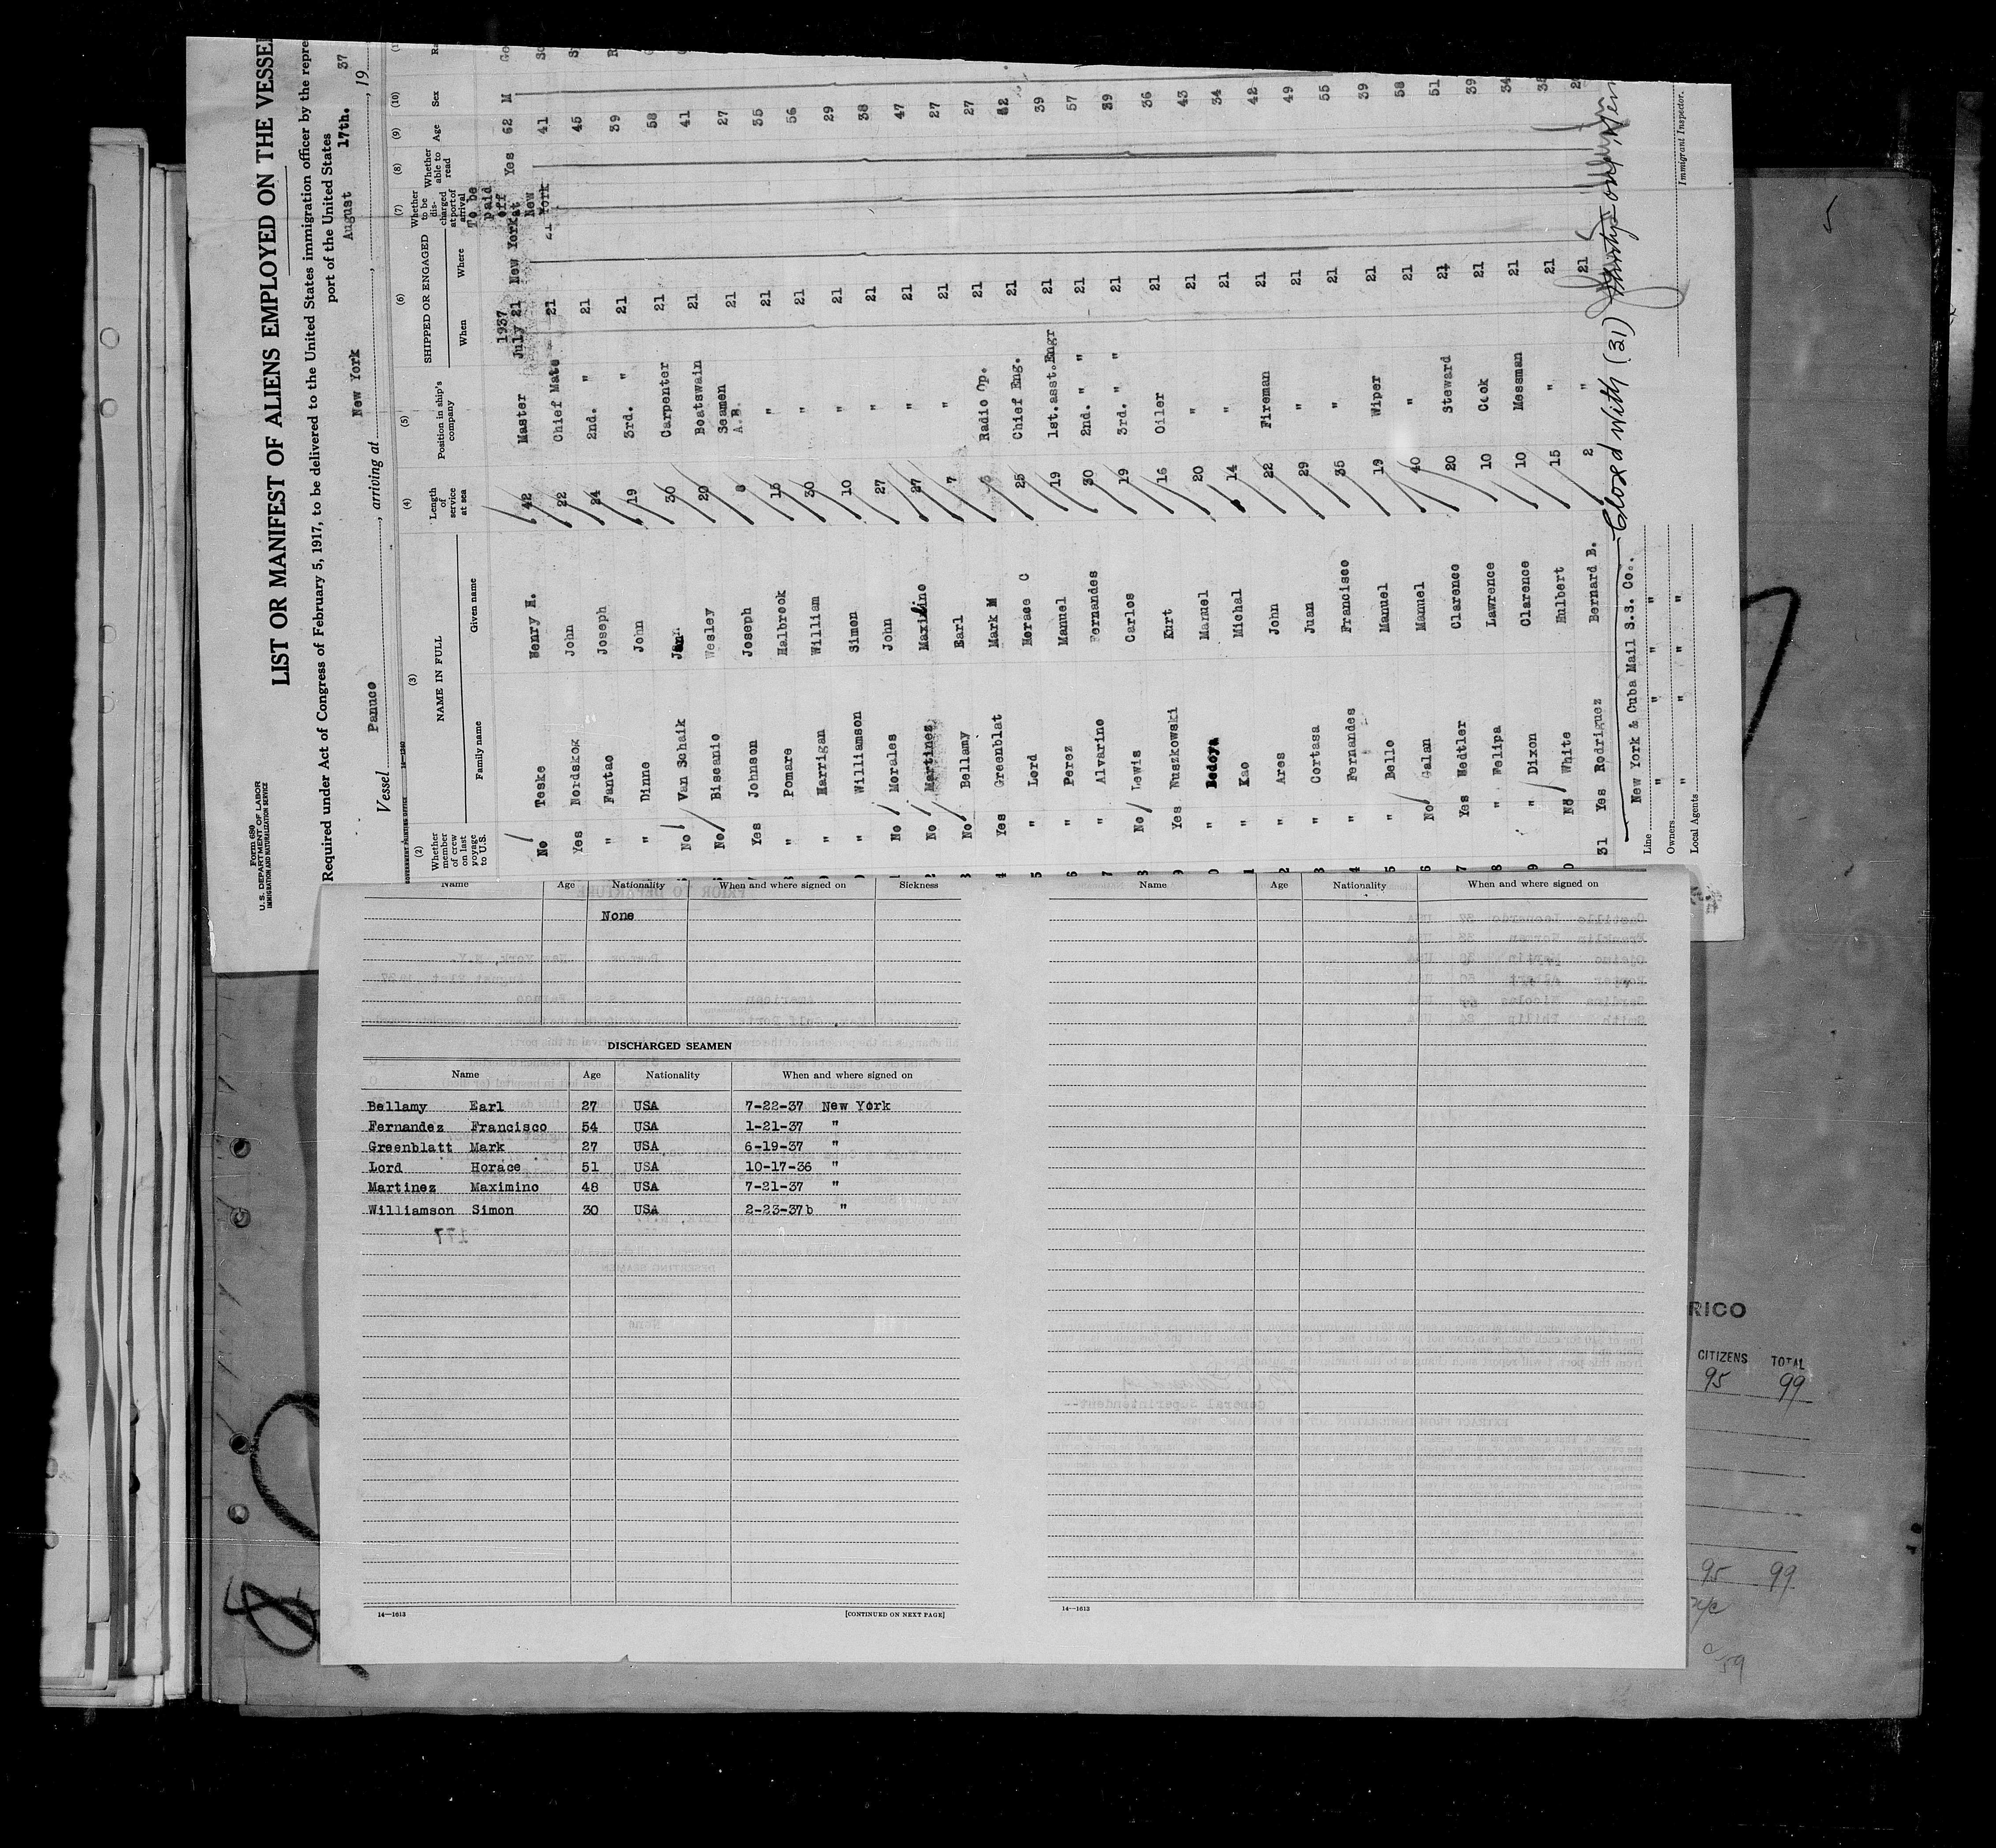 Form 680
U. S. DEPARTMENT OF LABOR
IMMIGRATION AND NATURALIZATION SERVICE
LIST OR MANIFEST OF ALIENS EMPLOYED ON THE VESSE
Required under Act of Congress of February 5, 1917, to be delivered to the United States immigration officer by the repre
port of the United States
Vessel Panuco, arriving at New York, August 17th., 19 37
(2) (3) (4) (5) (6) (7) (8) (9) (10)
Whether member of crew on last voyage to U.S. NAME IN FULL Family name Given name Length of service at sea Position in ship's company SHIPPED OR ENGAGED When Where Whether to be discharged at port of arrival Whether able to read Age Sex
No Teske Henry H. 42 Master 1937 July 21 New York To be paid off at New York Yes 62 M
Yes Nordskog John 22 Chief Mate 21 41
" Fantao Joseph 24 2nd. " 21 45
" Dinne John 19 3rd. " 21 39
No Van Schaik 30 Carpenter 21 58
No Biscanio Wesley 20 Boatswain 21 41
Yes Johnson Joseph 8 Seamen A.B. 21 27
" Pomare Halbrock 15 " 21 35
" Harrigan William 30 " 21 56
" Williamson Simon 10 " 21 29
No Morales John 27 " 21 38
No Martinez Maximino 27 " 21 47
No Bellamy Earl 7 " 21 27
Yes Greenblat Mark M Radio Op. 21 27
" Lord Horace C 25 Chief Eng. 21
" Perez Manuel 19 1st.asst.Engr 21 39
" Alvarine Fernandes 30 2nd. " " 21 57
No Lewis Carlos 19 3rd. " " 21 39
Yes Wuszkowski Kurt 16 Oiler 21 36
" Bedoya Manuel 20 " 21 43
" Kao Michal 14 " 21 34
" Ares John 22 Fireman 21 42
" Cortasa Juan 29 " 21 49
" Fernandes Francisco 35 " 21 55
" Bello Manuel 19 Wiper 21 39
No Galan Manuel 40 " 21 58
Yes Hedtler Clarence 20 Steward 21 51
" Felipa Lawrence 10 Cook 21 39
" Dixon Clarence 10 Messman 21 34
No White Hulbert 15 " 21
31 Yes Rodriguez Bernard B. 2 " 21
Closed With (31)
Line New York & Cuba Mail S.S. Co.
Owners " " " "
Local Agents " " " "
Immigrant Inspector.
Name Age Nationality When and where signed on Sickness
None
DISCHARGED SEAMEN
Name Age Nationality When and where signed on
Bellamy Earl 27 USA 7-22-37 New York
Fernandez Francisco 54 USA 1-21-37 "
Greenblatt Mark 27 USA 6-19-37 "
Lord Horace 51 USA 10-17-36 "
Martinez Maximino 48 USA 7-21-37 "
Williamson Simon 30 USA 2-23-37b "
14—1613 [CONTINUED ON NEXT PAGE]
Name Age Nationality When and where signed on
14—1613
RICO
CITIZENS TOTAL
95 99
95 99